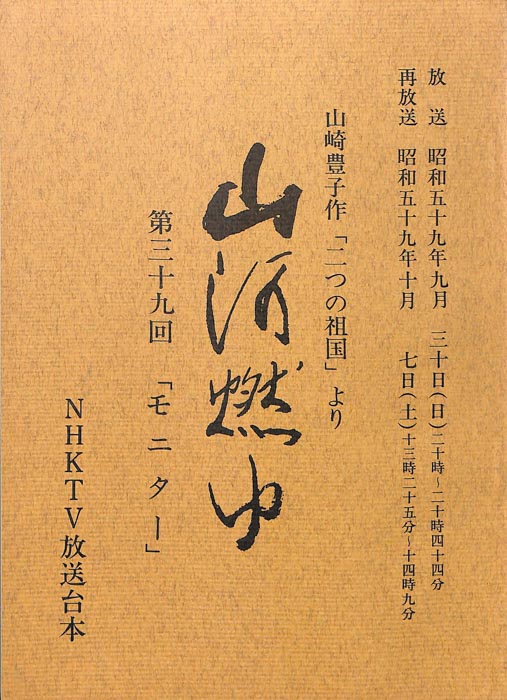 放　送　昭和五十九年九月　三十日(日)二十時～二十時四十四分
再放送　昭和五十九年十月　七日(土)十三時二十五分～十四時九分
山崎豊子作「二つの祖国」より
山河燃ゆ
第三十九回　「モニター」
NHKTV放送台本